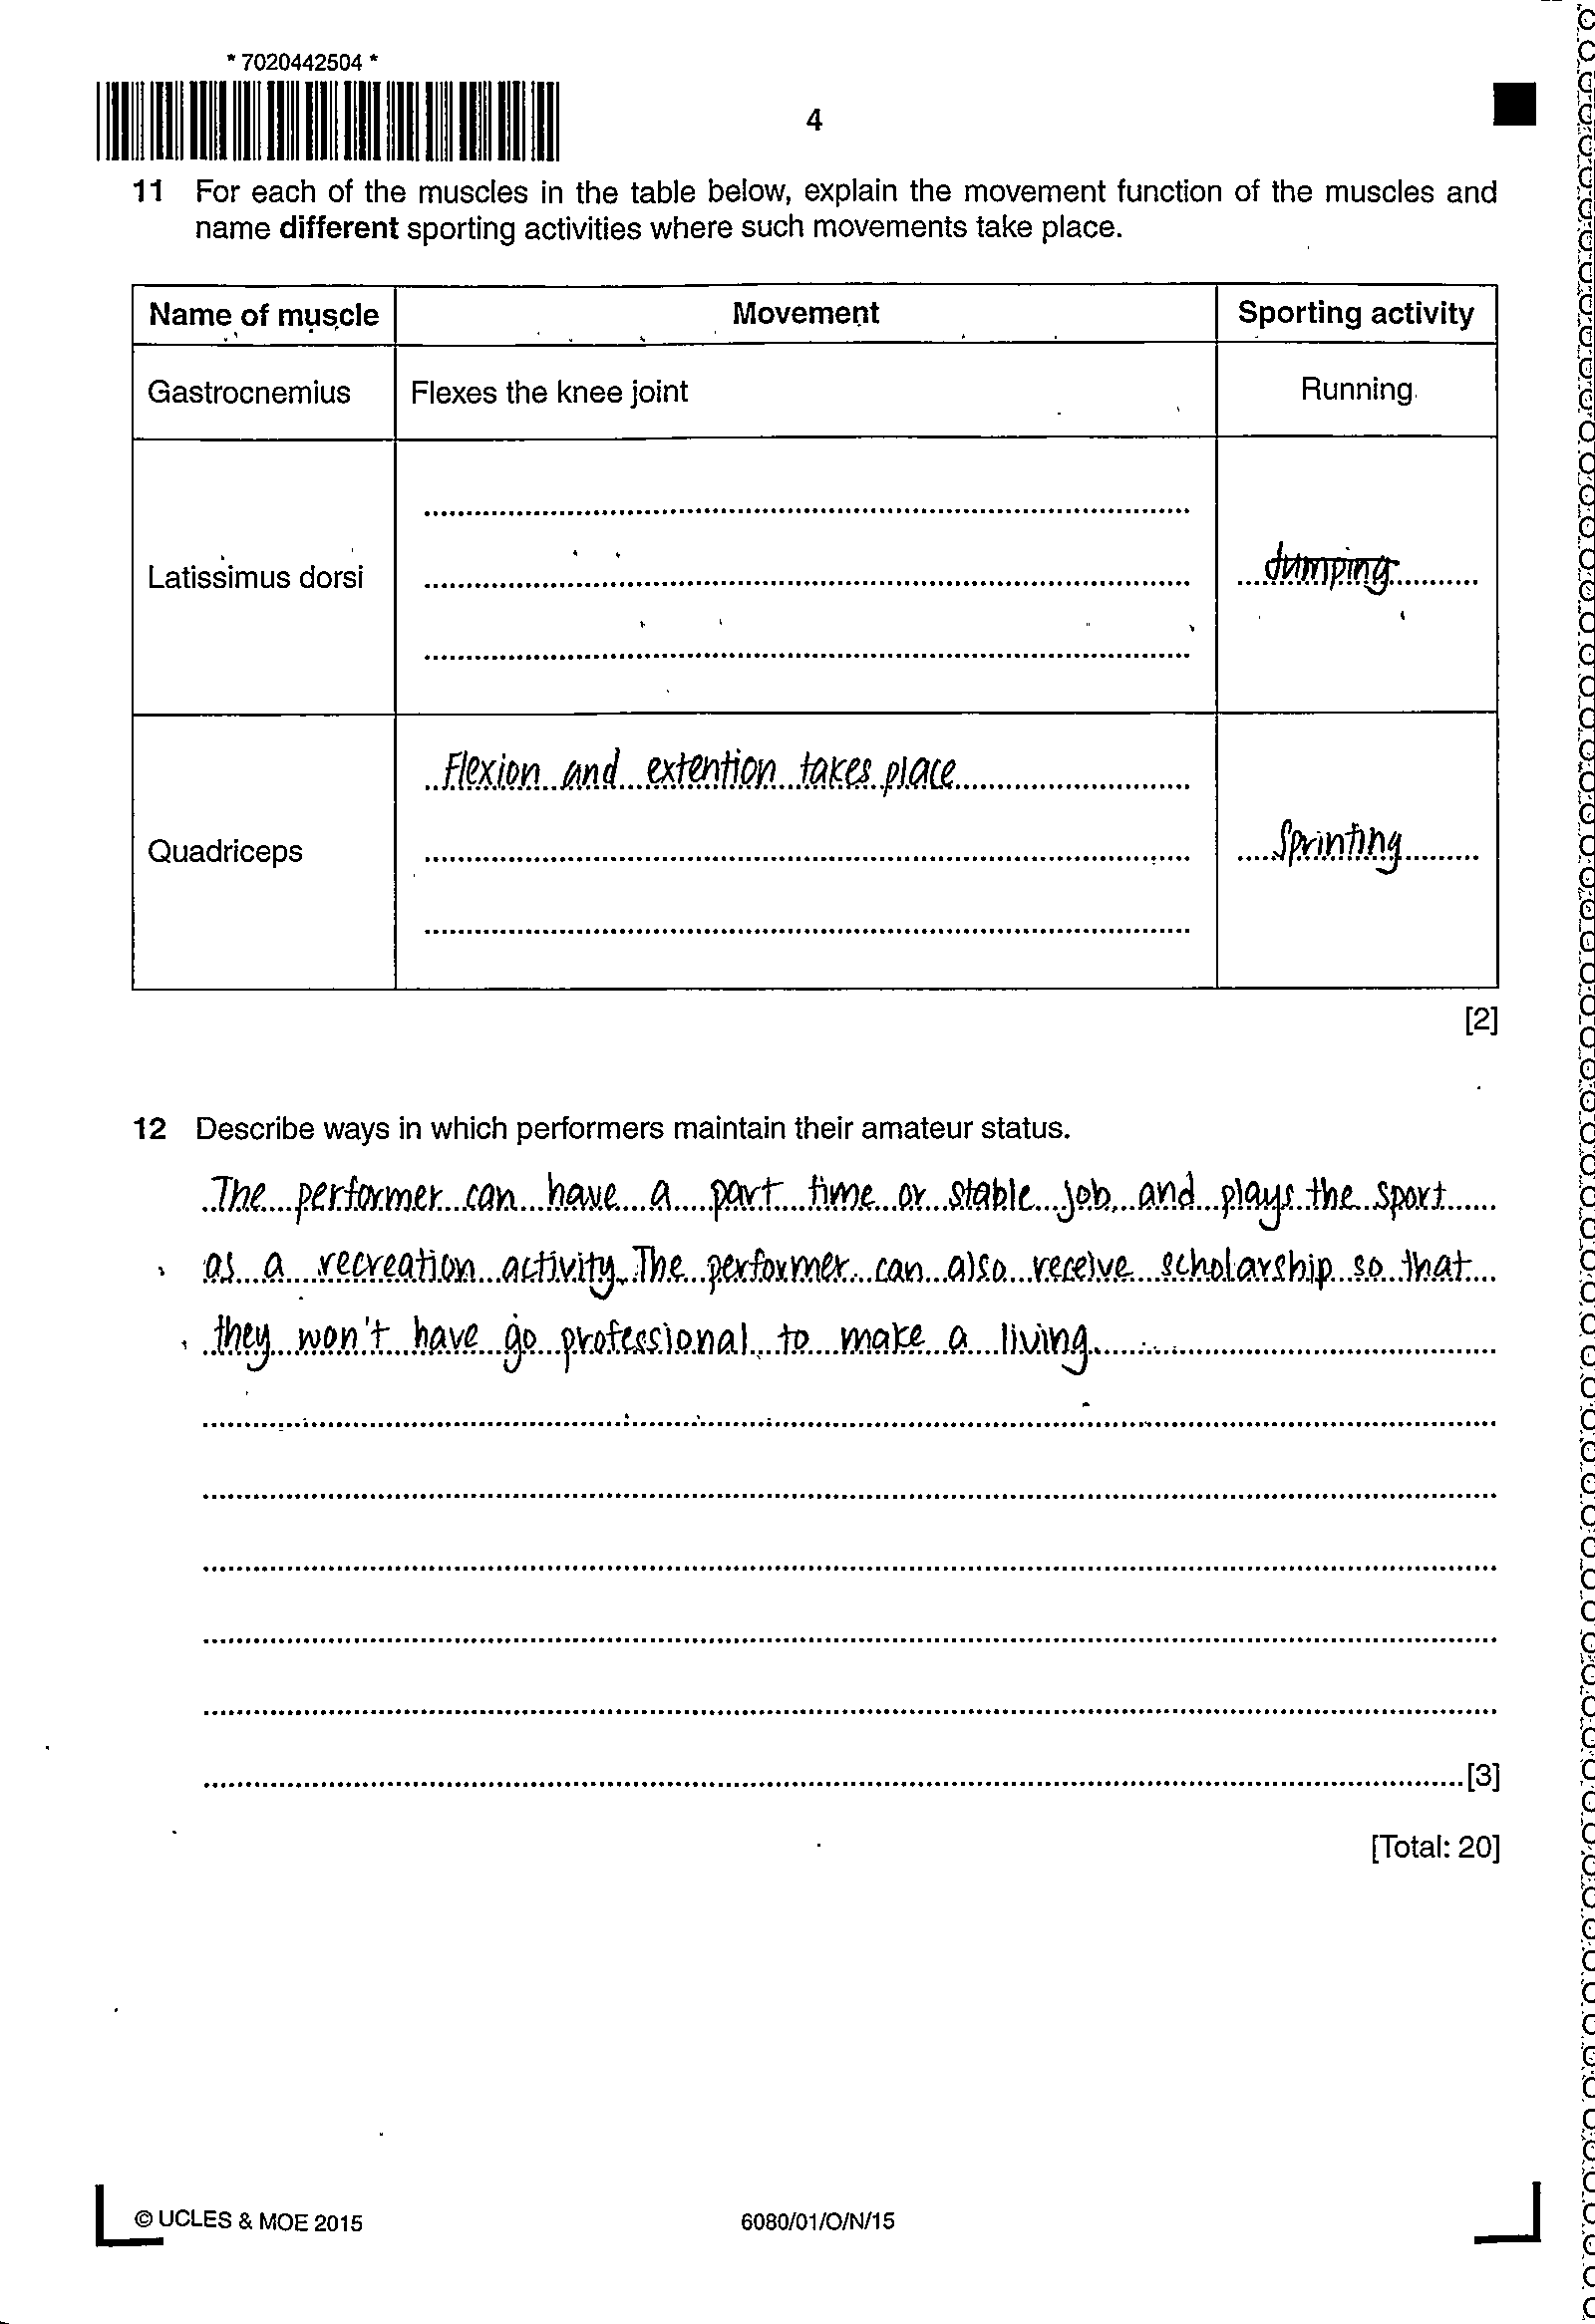 * 7020442504 *
4
11 For each of the muscles in the table below, explain the movement function of the muscles and
name different sporting activities where such movements take place.
Name of muscle Movement Sporting activity
Gastrocnemius Flexes the knee joint Running
Latissimus dorsi Jumping
Flexion and extention takes place
Quadriceps Sprinting
[2]
12 Describe ways in which performers maintain their amateur status.
The performer can have a part time or stable job, and plays the sport
as a recreation activity. The performer can also receive scholarship so that
they won't have go professional to make a living.
[3]
[Total: 20]
© UCLES & MOE 2015 6080/01/O/N/15